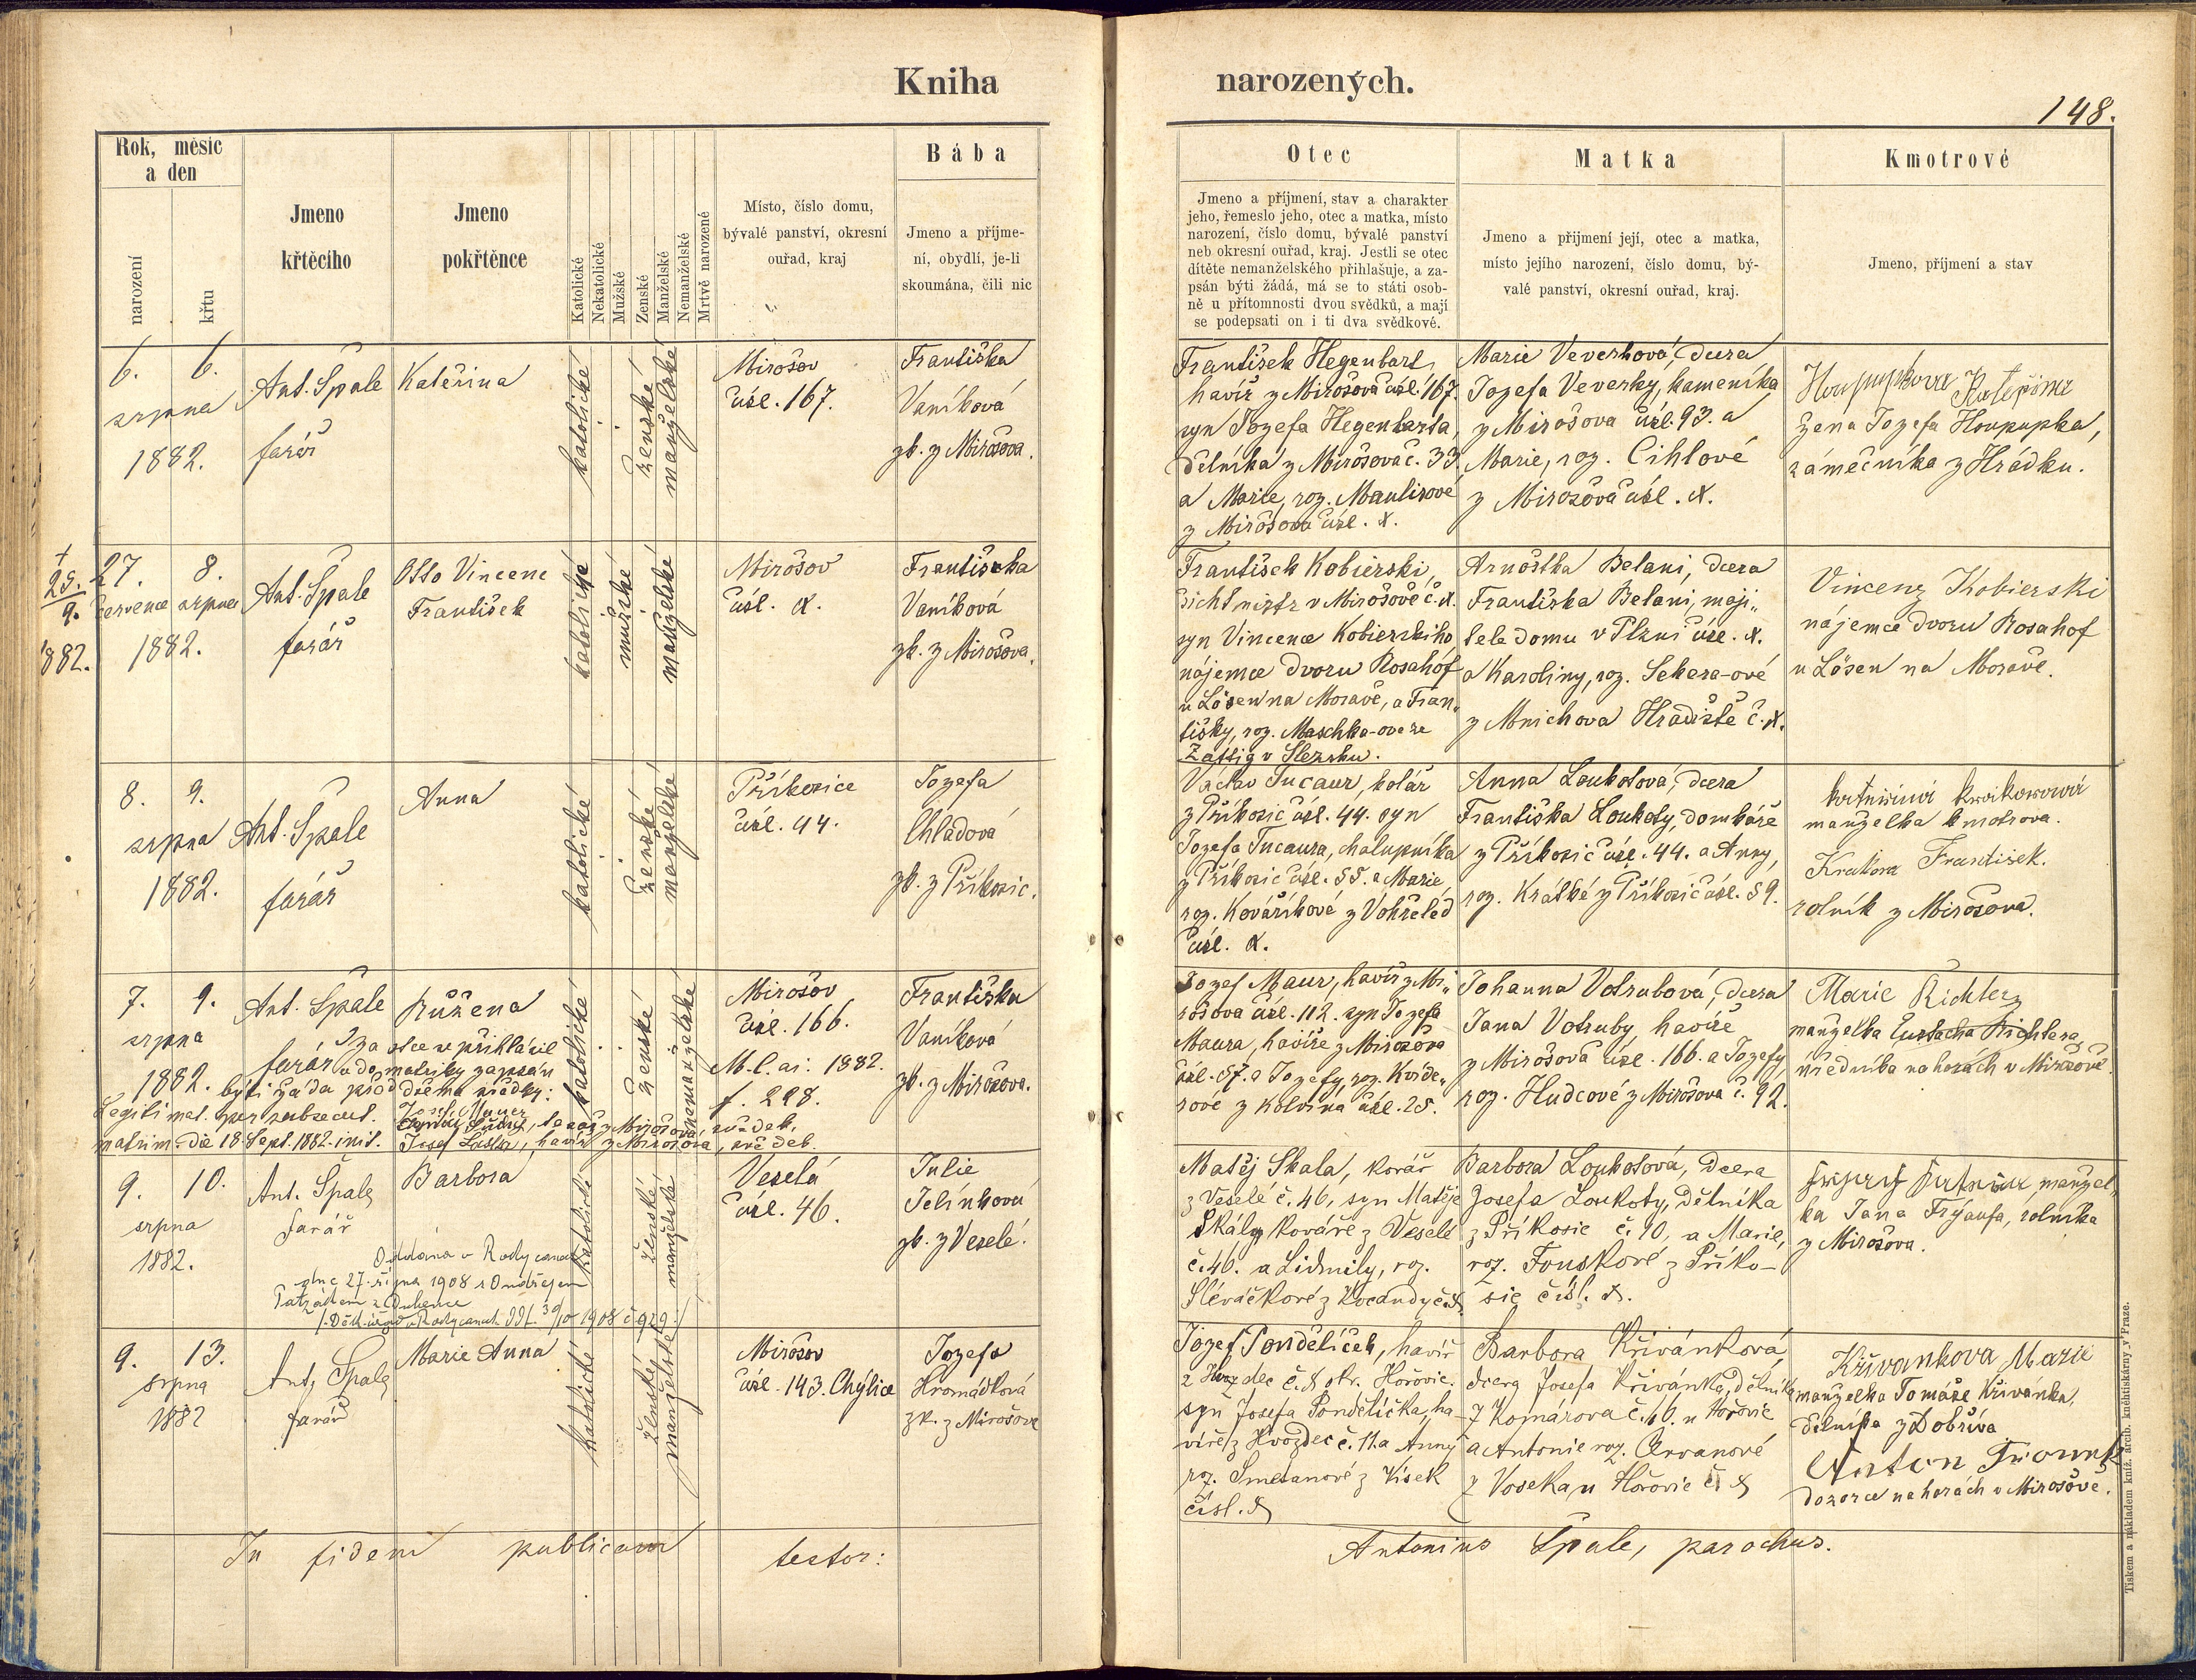 Kniha narozených.
148.
Rok, měsíc
a den
narození
křtu
Jmeno
křtěcího
Jmeno
pokřtěnce
Katolické
Nekatolické
Mužské
Ženské
Manželské
Nemanželské
Mrtvě narozené
Místo, číslo domu,
bývalé panství, okresní
ouřad, kraj
Bába
Jmeno a příjme-
ní, obydlí, je-li
skoumána, čili nic
Otec
Jmeno a příjmení, stav a charakter
jeho, řemeslo jeho, otec a matka, místo
narození, číslo domu, bývalé panství
neb okresní ouřad, kraj. Jestli se otec
dítěte nemanželského přihlašuje, a za-
psán býti žádá, má se to státi osob-
ně u přítomnosti dvou svědků, a mají
se podepsati on i ti dva svědkové.
Matka
Jmeno a přijmení její, otec a matka,
místo jejího narození, číslo domu, bý-
valé panství, okresní ouřad, kraj.
Kmotrové
Jmeno, příjmení a stav
6. 6.
srpna
1882.
Ant. Špale
farář
Kateřina
katolické
ženské
manželské
Mirošov
čísl. 167.
Františka
Vaníková
zk. z Mirošova.
František Hegenbart,
havíř z Mirošova čísl. 167.
syn Jozefa Hegenbarta,
dělníka z Mirošova č. 33
a Marie, roz. Maulisové
z Mirošova čísl. X.
Marie Veverková, dcera
Jozefa Veverky, kameníka
z Mirošova čísl. 93. a
Marie, roz. Cihlové
z Mirošova čísl. X.
Houpupkova Kateřina
žena Jozefa Houpupka,
zámečníka z Hrádku.
†
25.
9.
1882.
27. 8.
července srpna
1882.
Ant. Špale
farář
Otto Vincenc
František
katolické
mužské
manželské
Mirošov
čísl. X.
Františka
Vaníková
zk. z Mirošova.
František Kobierski
šichtmistr v Mirošově č. X.
syn Vincence Kobierskiho
nájemce dvoru Rosahof
u Lösen na Moravě, a Fran„
tišky, roz. Maschka-ove ze
Zattig v Slezsku.
Arnoštka Belani, dcera
Františka Belani, maji„
tele domu v Plzni čísl. X.
a Karoliny, roz. Sekera-ové
z Mnichova Hradiště č. X.
Vincenz Kobierski
nájemce dvoru Rosahof
u Lösen na Moravě.
8. 9.
srpna
1882.
Ant. Špale
farář
Anna
katolické
ženské
manželské
Příkosice
čísl. 44.
Jozefa
Chladová
zk. z Příkosic.
Václav Tucaur, kolář
z Příkosic čísl. 44. syn
Jozefa Tucaura, chalupníka
z Příkosic čísl. 55. a Marie
roz. Kovaříkové z Vohřeled
čísl. X.
Anna Loukotová, dcera
Františka Loukoty, domkáře
z Příkosic čísl. 44. a Anny,
roz. Krátké z Příkosic čísl. 59.
manželka kmotrova.
František.
rolník z Mirošova.
7. 9.
srpna
1882.
Ant. Špale
farář
Růžena
Iza otce se přihlásil
a do matriky zapsán
býti žádá před dvěma svědky:
Legitimat. per subsecut.
matrim. die 18 Sept. 1882. init.
Josef Mauer
z Mirošova, svědek.
Josef Laštr, havíř z Mirošova, svědek.
katolické
ženské
nemanželské
Mirošov
čísl. 166.
M. C. ai: 1882.
f. 228.
Františka
Vaníková
zk. z Mirošova.
Jozef Maur, havíř z Mi„
rošova čísl. 112. syn Jozefa
Maura, havíře z Mirošova
čísl. 57. a Jozefy, roz. Kvíde„
rové z Kolvína čísl. 25.
Johanna Votrubová, dcera
Jana Votruby, havíře
z Mirošova čísl. 166. a Jozefy,
roz. Hudcové z Mirošova č. 92.
Marie Richterz
manželka Eustacha Richtera,
úředníka na horách v Mirošově.
9. 10.
srpna
1882.
Ant. Špale
farář
Barbora
Oddána v Rokycanech
dne 27. října 1908 s Ondřejem
1908 č 929
katolické
ženské
manželské
Veselá
čísl. 46.
Julie
Jelínková
zk. z Veselé.
Matěj Skala, kovář
z Veselé č. 46, syn Matěje
Skály kováře z Veselé
č. 46. a Lidmily, roz.
Slévačkové z Kocandy č. X.
Barbora Loukotová, dcera
Josefa Loukoty, dělníka
z Příkosic č. 90, a Marie,
roz. Fouskové z Příko-
sic čísl. X.
manžel„
ka Jana Frýaufa, rolníka
z Mirošova.
9. 13.
srpna
1882
Ant. Špale
farář
Marie Anna
katolické
ženské
manželské
Mirošov
čísl. 143. Chýlice
Jozefa
Hromádková
zk. z Mirošova
Jozef Pondělíček, havíř
z Hvozdec č. X okr. Hořovic.
syn Josefa Pondělíčka, ha
víře z Hvozdec č. 11. a Anny
roz. Smetanové z Vísek
čísl. X
Barbora Křivánková,
dcera Josefa Křivánka, dělníka
z Komárova č. 16. u Hořovic
a Antonie roz. Arvanové
z Voseka u Hořovic č. X
Křivankova Marie
manželka Tomáše Křivánka,
dělníka z Dobříva
Anton
dozorce na horách v Mirošově.
In fidem publicam testor:
Antonius Špale, parochus.
Tiskem a nákladem kníž. arcib. kněhtiskárny v Praze.